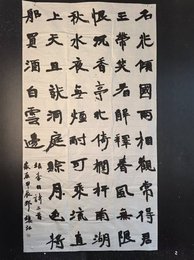 名花傾國兩相歡常得君
王帶笑看解釋春風無限
恨沉香亭北倚闌干南湖
秋水夜無煙耐可乘流直
上天且就洞庭賒月色將
船買酒白雲邊
李白詩二首
甲辰